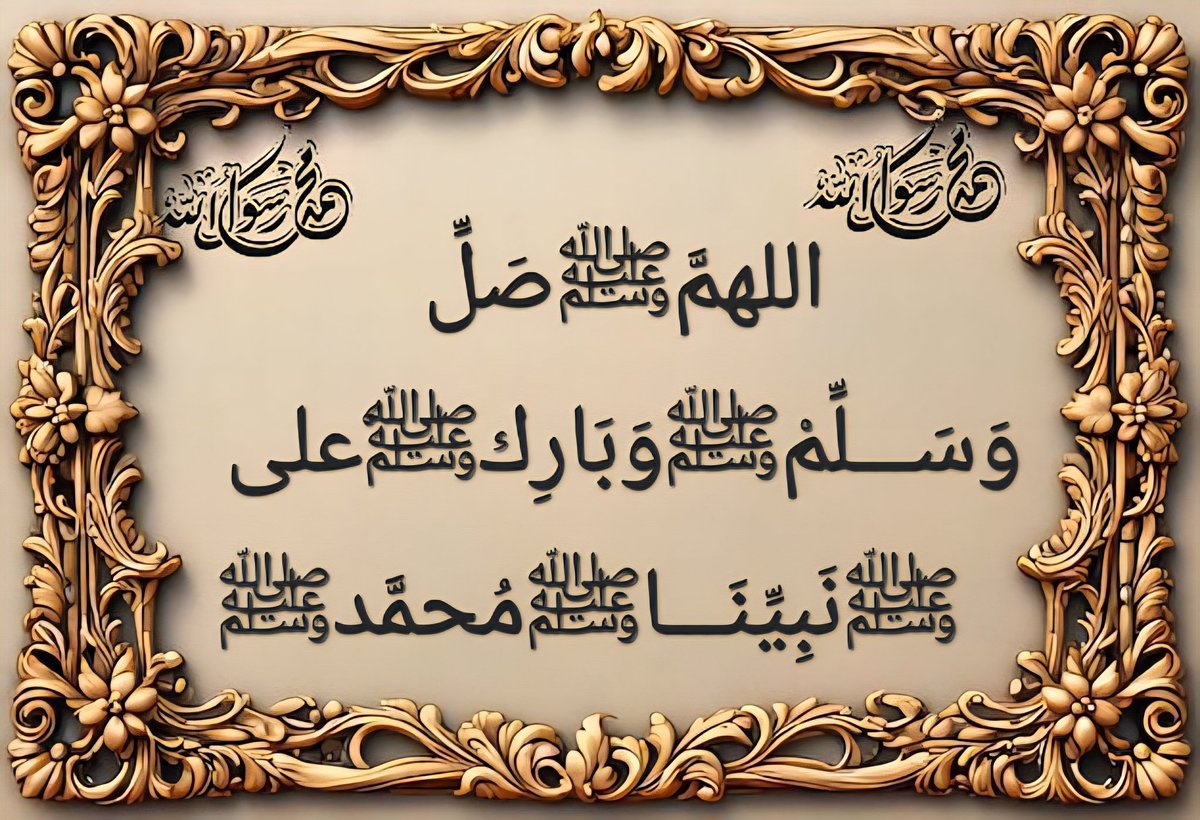 محمد رسول الله
محمد رسول الله
اللهمَّ ﷺ صَلِّ
وَسَـــلِّمْ ﷺ وَبَارِك ﷺ على
ﷺ نَبِيِّنَـــا ﷺ مُحمَّد ﷺ